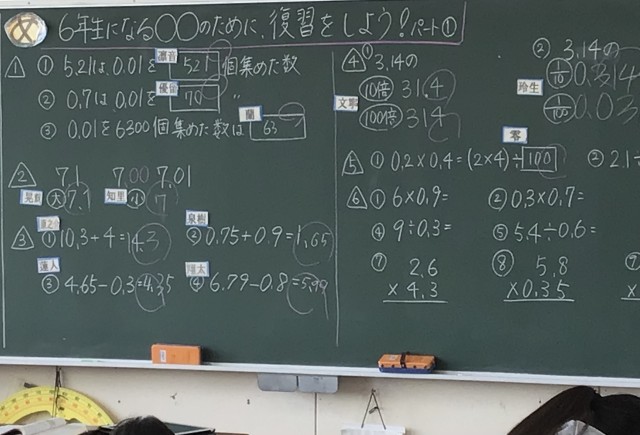 め 6年生になる〇〇のために、復習をしよう!パート①
△1 ① 5.21は0.01を 521 個集めた数
凛音
② 0.7は0.01を 70 〃
③ 0.01を6300個集めた数は 63
蘭
△2 7.1 7.00 7.01
大 7.1 小 7
知里
△3 ① 10.3+4=14.3 ② 0.75+0.9=1.65
泉樹
③ 4.65-0.3=4.35 ④ 6.79-0.8=5.99
蓮人 翔太
△4 ① 3.14の
10倍 31.4
100倍 314
② 3.14の
1/10 0.314
1/100 0.03
玲生
零
△5 ① 0.2×0.4=(2×4)÷100 ② 2.1÷
△6 ① 6×0.9= ② 0.3×0.7=
④ 9÷0.3= ⑤ 5.4÷0.6=
⑦ 2.6
×4.3
⑧ 5.8
×0.35